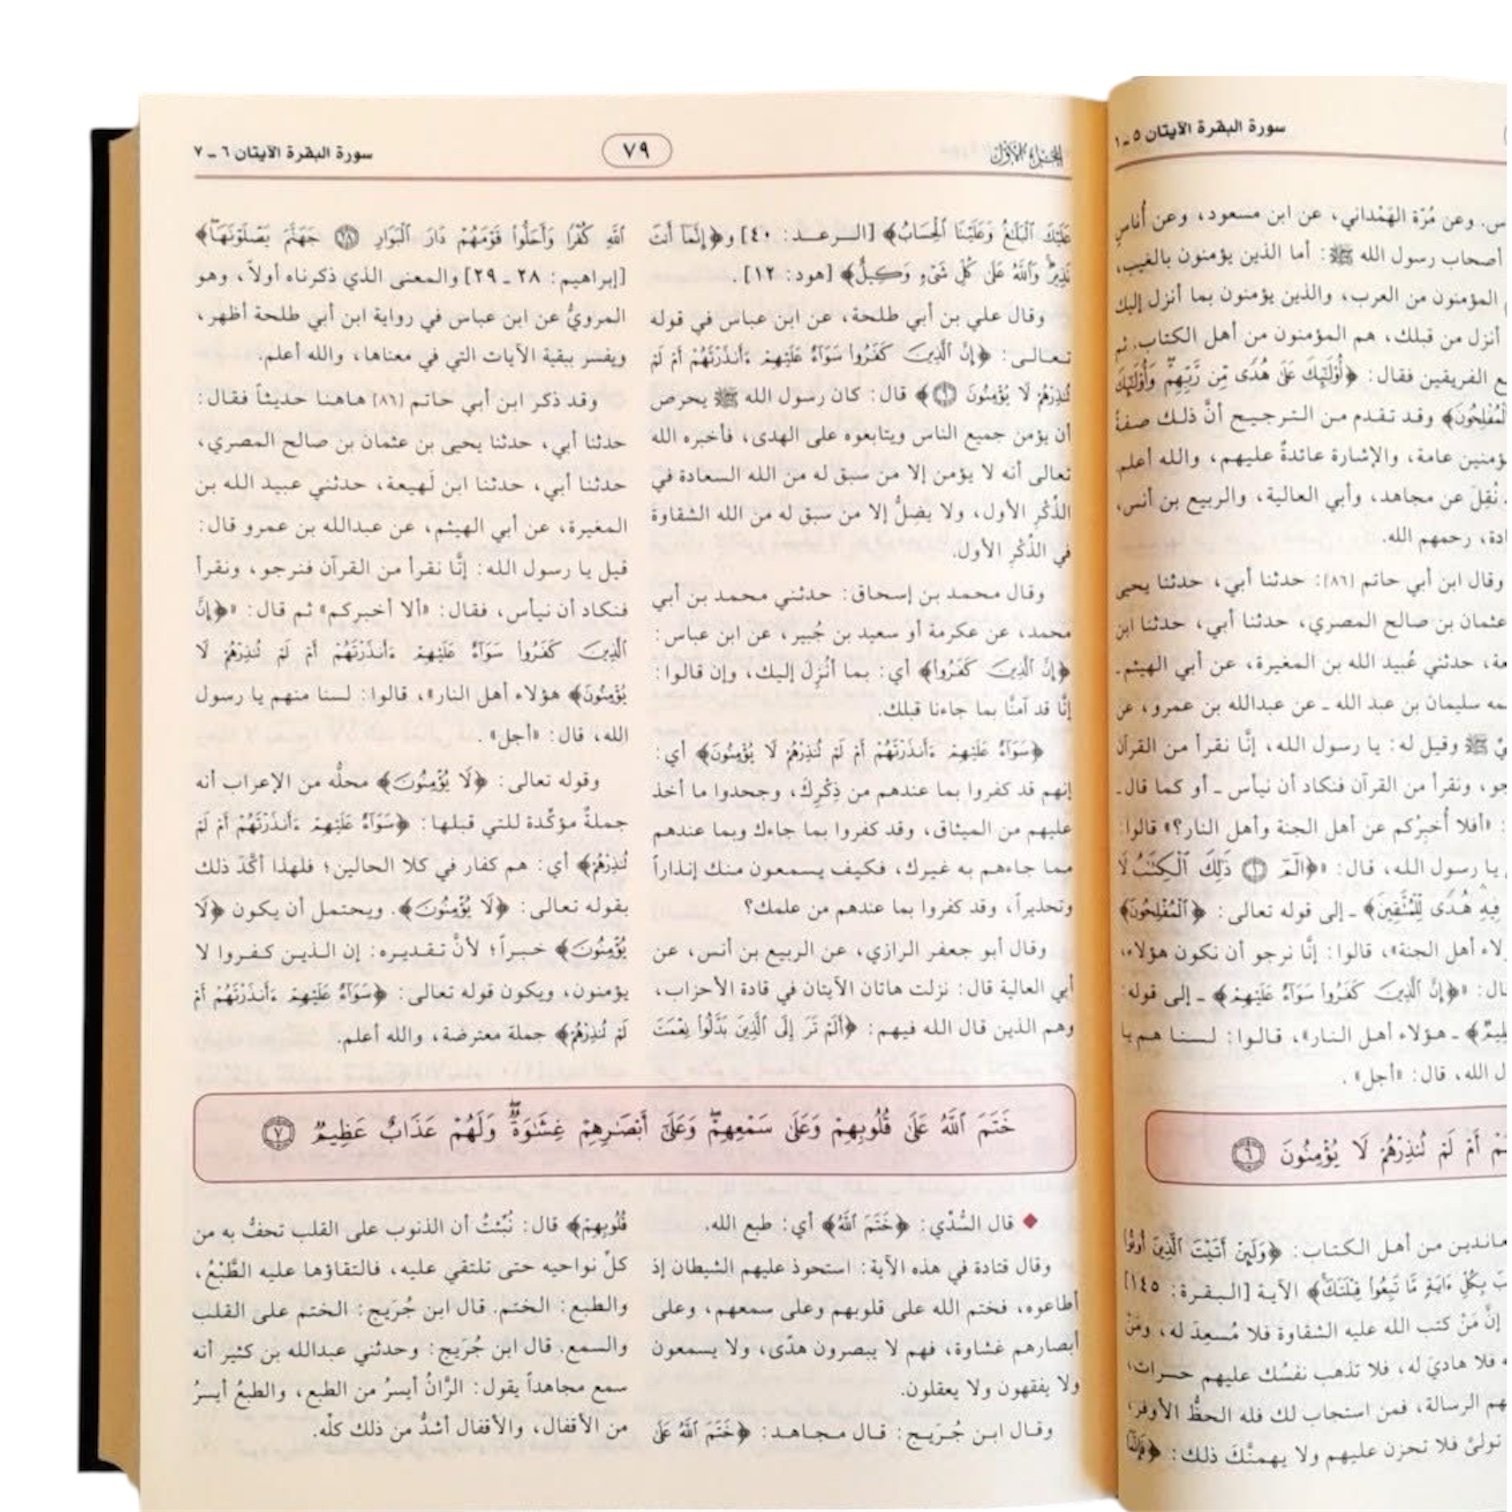 سورة البقرة الآيتان ٥ ـ ٦
س. وعن مُرّة الهَمْداني، عن ابن مسعود، وعن أُناسٍ
أصحاب رسول الله ﷺ: أما الذين يؤمنون بالغيب،
المؤمنون من العرب، والذين يؤمنون بما أنزل إليك
أنزل من قبلك، هم المؤمنون من أهل الكتاب. ثم
ع الفريقين فقال: ﴿أُوْلَٰٓئِكَ عَلَىٰ هُدًى مِّن رَّبِّهِمْ وَأُوْلَٰٓئِكَ
لْمُفْلِحُونَ﴾ وقد تقدم من الترجيح أنَّ ذلك صفةُ
ؤمنين عامة، والإشارة عائدةٌ عليهم، والله أعلم.
نُقِلَ عن مجاهد، وأبي العالية، والربيع بن أنس،
ادة، رحمهم الله.
وقال ابن أبي حاتم [٨٦]: حدثنا أبيَ، حدثنا يحيى
عثمان بن صالح المصري، حدثنا أبي، حدثنا ابن
عة، حدثني عُبيد الله بن المغيرة، عن أبي الهيثم ـ
مه سليمان بن عبد الله ـ عن عبدالله بن عمرو، عن
يّ ﷺ وقيل له: يا رسول الله، إنَّا نقرأ من القرآن
جو، ونقرأ من القرآن فنكاد أن نيأس ـ أو كما قال ـ
: «أفلا أُخبِرُكم عن أهل الجنة وأهل النار؟» قالوا:
يا رسول الله، قال: «﴿الٓمٓ ۝١ ذَٰلِكَ ٱلْكِتَٰبُ لَا
فِيهِ هُدًى لِّلْمُتَّقِينَ﴾ ـ إلى قوله تعالى: ﴿ٱلْمُفْلِحُونَ﴾
ؤلاء أهل الجنة»، قالوا: إنَّا نرجو أن نكون هؤلاء،
قال: «﴿إِنَّ ٱلَّذِينَ كَفَرُوا۟ سَوَآءٌ عَلَيْهِمْ﴾ ـ إلى قوله:
ظِيمٌ﴾ ـ هؤلاء أهل النار»، قالوا: لسنا هم يا
ل الله، قال: «أجل».
هُمْ أَمْ لَمْ تُنذِرْهُمْ لَا يُؤْمِنُونَ ۝٦
عاندين من أهل الكتاب: ﴿وَلَئِنْ أَتَيْتَ ٱلَّذِينَ أُوتُوا۟
بَ بِكُلِّ ءَايَةٍ مَّا تَبِعُوا۟ قِبْلَتَكَ﴾ الآية [البقرة: ١٤٥]
إنَّ مَنْ كتب الله عليه الشقاوة فلا مُسعِدَ له، ومَنْ
ه فلا هاديَ له، فلا تذهب نفسُك عليهم حسرات،
هم الرسالة، فمن استجاب لك فله الحظُّ الأوفر،
تولىّ فلا تحزن عليهم ولا يهمنَّكَ ذلك: ﴿فَإِنَّمَا
الجزء الأول
٧٩
سورة البقرة الآيتان ٦ ـ ٧
عَلَيْكَ ٱلْبَلَٰغُ وَعَلَيْنَا ٱلْحِسَابُ﴾ [الرعد: ٤٠] و﴿إِنَّمَآ أَنتَ
نَذِيرٌ وَٱللَّهُ عَلَىٰ كُلِّ شَىْءٍ وَكِيلٌ﴾ [هود: ١٢].
وقال علي بن أبي طلحة، عن ابن عباس في قوله
تعالى: ﴿إِنَّ ٱلَّذِينَ كَفَرُوا۟ سَوَآءٌ عَلَيْهِمْ ءَأَنذَرْتَهُمْ أَمْ لَمْ
تُنذِرْهُمْ لَا يُؤْمِنُونَ ۝٦﴾ قال: كان رسول الله ﷺ يحرص
أن يؤمن جميع الناس ويتابعوه على الهدى، فأخبره الله
تعالى أنه لا يؤمن إلا من سبق له من الله السعادة في
الذِّكْرِ الأول، ولا يضلُّ إلا من سبق له من الله الشقاوة
في الذِّكْرِ الأول.
وقال محمد بن إسحاق: حدثني محمد بن أبي
محمد، عن عكرمة أو سعيد بن جُبير، عن ابن عباس:
﴿إِنَّ ٱلَّذِينَ كَفَرُوا۟﴾ أي: بما أُنزِلَ إليك، وإن قالوا:
إنَّا قد آمنَّا بما جاءنا قبلك.
﴿سَوَآءٌ عَلَيْهِمْ ءَأَنذَرْتَهُمْ أَمْ لَمْ تُنذِرْهُمْ لَا يُؤْمِنُونَ﴾ أي:
إنهم قد كفروا بما عندهم من ذِكْرِكَ، وجحدوا ما أخذ
عليهم من الميثاق، وقد كفروا بما جاءك وبما عندهم
مما جاءهم به غيرك، فكيف يسمعون منك إنذاراً
وتحذيراً، وقد كفروا بما عندهم من علمك؟
وقال أبو جعفر الرازي، عن الربيع بن أنس، عن
أبي العالية قال: نزلت هاتان الآيتان في قادة الأحزاب،
وهم الذين قال الله فيهم: ﴿أَلَمْ تَرَ إِلَى ٱلَّذِينَ بَدَّلُوا۟ نِعْمَتَ
ٱللَّهِ كُفْرًا وَأَحَلُّوا۟ قَوْمَهُمْ دَارَ ٱلْبَوَارِ ۝٢٨ جَهَنَّمَ يَصْلَوْنَهَا﴾
[إبراهيم: ٢٨ ـ ٢٩] والمعنى الذي ذكرناه أولاً، وهو
المرويُّ عن ابن عباس في رواية ابن أبي طلحة أظهر،
ويفسر ببقية الآيات التي في معناها، والله أعلم.
وقد ذكر ابن أبي حاتم [٨٦] هاهنا حديثاً فقال:
حدثنا أبي، حدثنا يحيى بن عثمان بن صالح المصري،
حدثنا أبي، حدثنا ابن لَهيعة، حدثني عبيد الله بن
المغيرة، عن أبي الهيثم، عن عبدالله بن عمرو قال:
قيل يا رسول الله: إنَّا نقرأ من القرآن فنرجو، ونقرأ
فنكاد أن نيأس، فقال: «ألا أخبركم» ثم قال: «﴿إِنَّ
ٱلَّذِينَ كَفَرُوا۟ سَوَآءٌ عَلَيْهِمْ ءَأَنذَرْتَهُمْ أَمْ لَمْ تُنذِرْهُمْ لَا
يُؤْمِنُونَ﴾ هؤلاء أهل النار»، قالوا: لسنا منهم يا رسول
الله، قال: «أجل».
وقوله تعالى: ﴿لَا يُؤْمِنُونَ﴾ محلُّه من الإعراب أنه
جملةٌ مؤكِّدة للتي قبلها: ﴿سَوَآءٌ عَلَيْهِمْ ءَأَنذَرْتَهُمْ أَمْ لَمْ
تُنذِرْهُمْ﴾ أي: هم كفار في كلا الحالين؛ فلهذا أكَّدَ ذلك
بقوله تعالى: ﴿لَا يُؤْمِنُونَ﴾. ويحتمل أن يكون ﴿لَا
يُؤْمِنُونَ﴾ خبراً؛ لأنَّ تقديره: إن الذين كفروا لا
يؤمنون، ويكون قوله تعالى: ﴿سَوَآءٌ عَلَيْهِمْ ءَأَنذَرْتَهُمْ أَمْ
لَمْ تُنذِرْهُمْ﴾ جملة معترضة، والله أعلم.
خَتَمَ ٱللَّهُ عَلَىٰ قُلُوبِهِمْ وَعَلَىٰ سَمْعِهِمْ وَعَلَىٰٓ أَبْصَٰرِهِمْ غِشَٰوَةٌ وَلَهُمْ عَذَابٌ عَظِيمٌ ۝٧
◆ قال السُّدّي: ﴿خَتَمَ ٱللَّهُ﴾ أي: طبع الله.
وقال قتادة في هذه الآية: استحوذ عليهم الشيطان إذ
أطاعوه، فختم الله على قلوبهم وعلى سمعهم، وعلى
أبصارهم غشاوة، فهم لا يبصرون هدًى، ولا يسمعون
ولا يفقهون ولا يعقلون.
وقال ابن جُرَيج: قال مجاهد: ﴿خَتَمَ ٱللَّهُ عَلَىٰ
قُلُوبِهِمْ﴾ قال: نُبِّئتُ أن الذنوب على القلب تحفُّ به من
كلِّ نواحيه حتى تلتقي عليه، فالتقاؤها عليه الطَّبْعُ،
والطبع: الختم. قال ابن جُرَيج: الختم على القلب
والسمع. قال ابن جُرَيج: وحدثني عبدالله بن كثير أنه
سمع مجاهداً يقول: الرَّانُ أيسرُ من الطبع، والطبعُ أيسرُ
من الأقفال، والأقفال أشدُّ من ذلك كلّه.